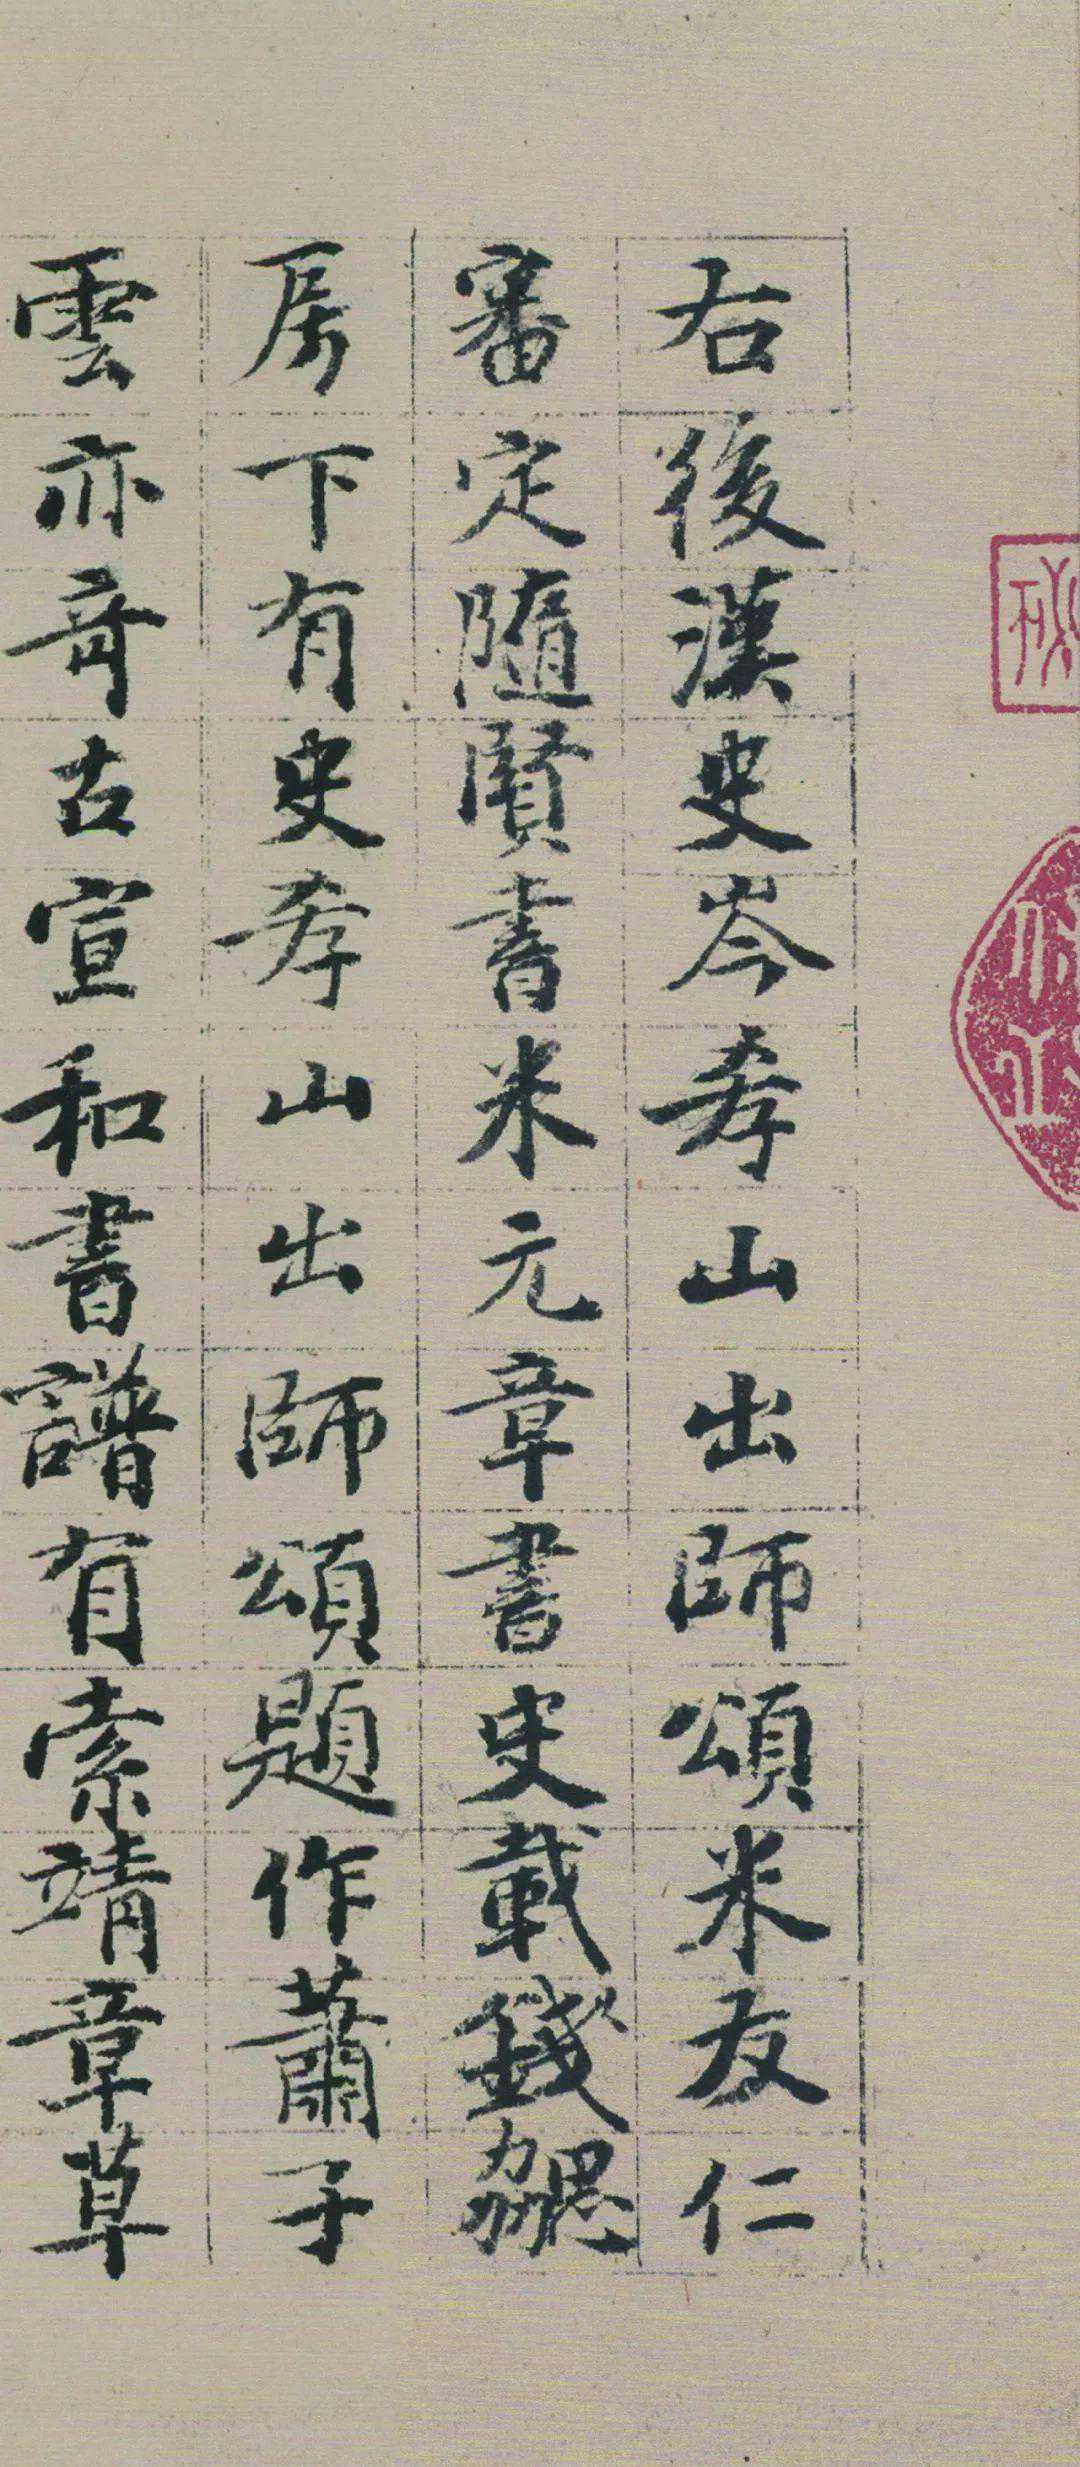 右後漢史岑孝山出師頌米友仁
審定隨賢書米元章書史載錢勰
房下有史孝山出師頌題作蕭子
雲亦奇古宣和書譜有索靖章草